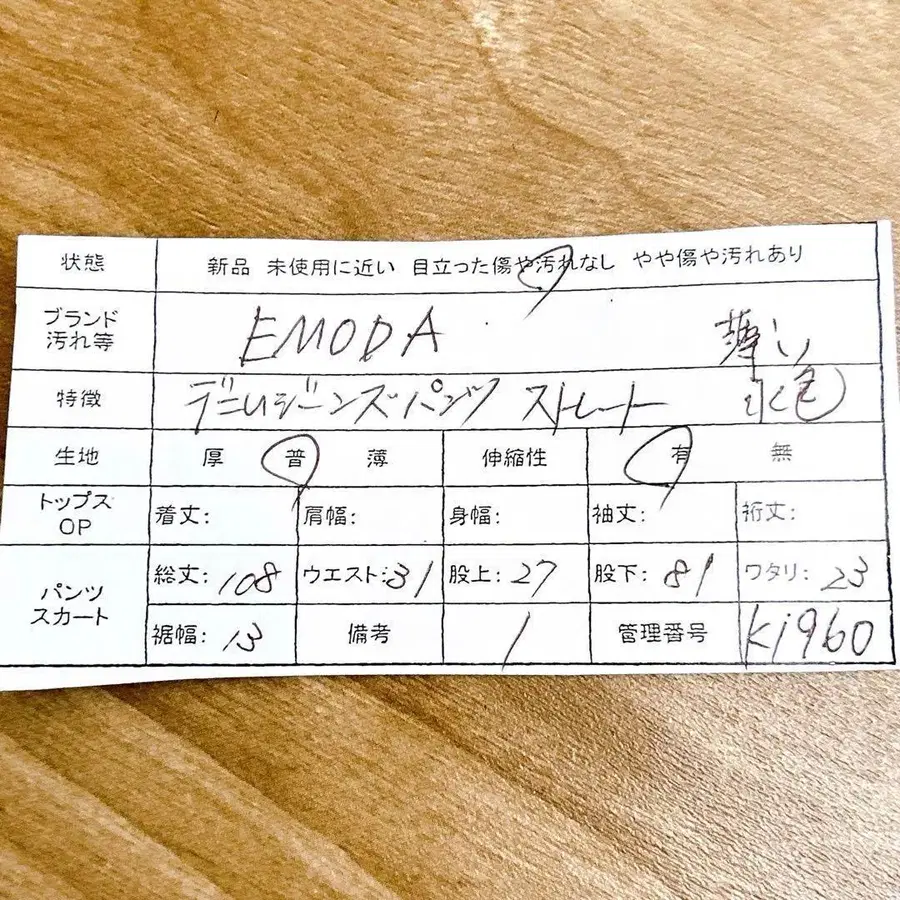 状態 新品 未使用に近い 目立った傷や汚れなし やや傷や汚れあり
ブランド EMODA 薄い
汚れ等
特徴 デニムジーンズパンツ ストレート 水色
生地 厚 普 薄 伸縮性 有 無
トップス OP 着丈: 肩幅: 身幅: 袖丈: 裄丈:
パンツ スカート 総丈: 108 ウエスト: 31 股上: 27 股下: 81 ワタリ: 23
裾幅: 13 備考 1 管理番号 K1960